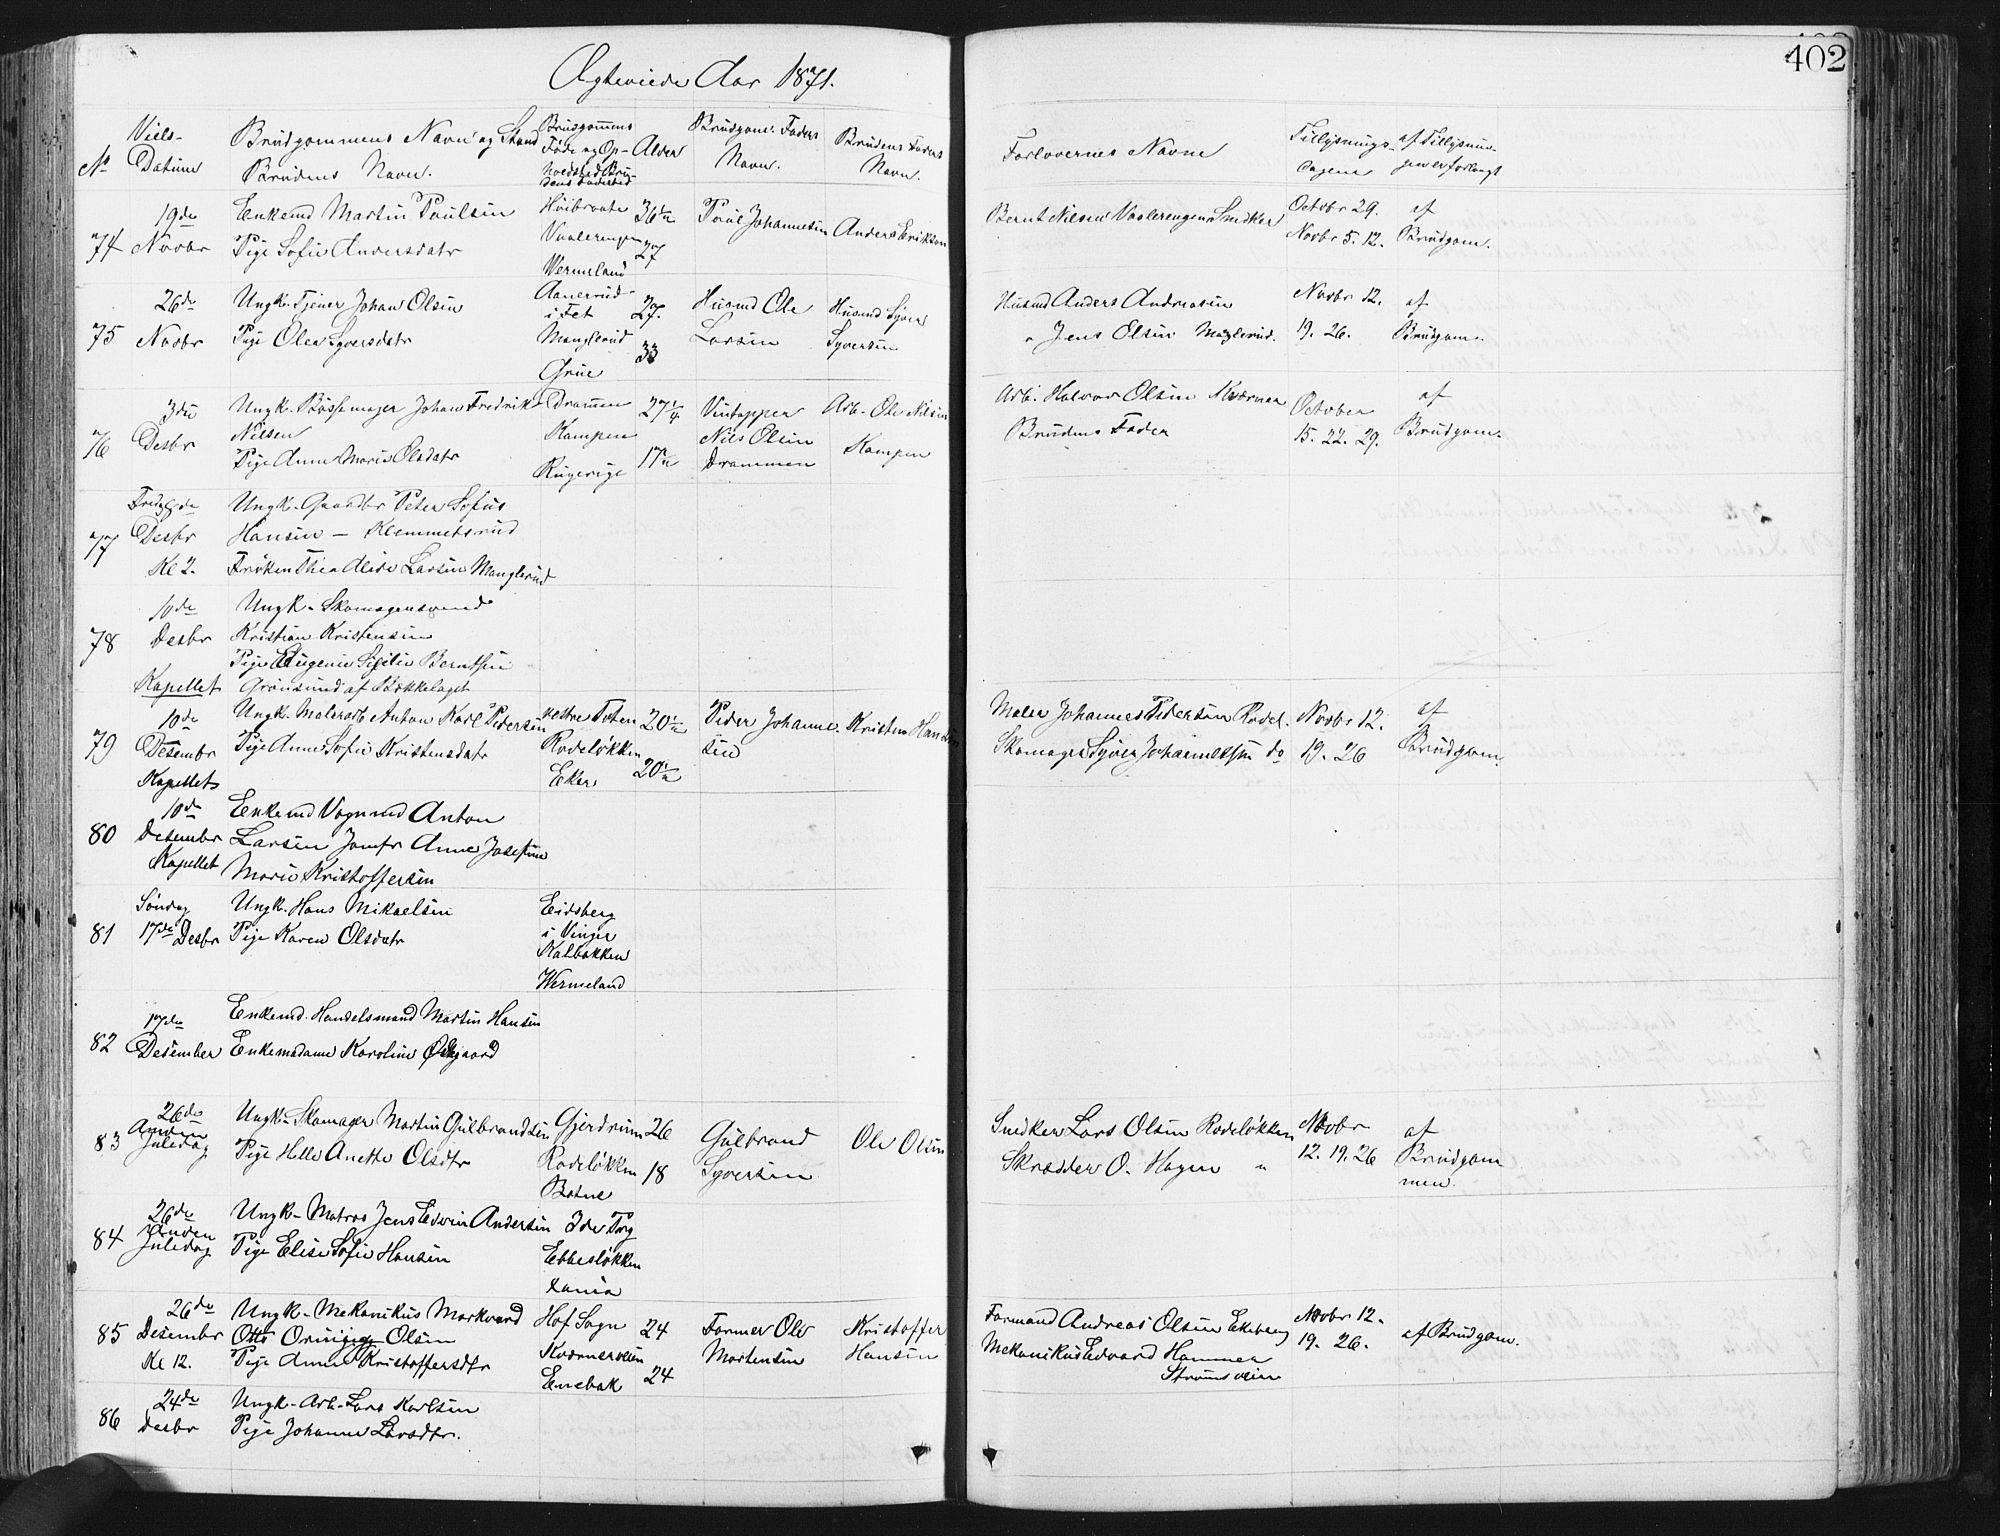 402
Ægteviede Aar 1871.
No
Viels-
Datum
Brudgommens Navn og Stand
Brudens Navn.
Brudgommens
Føde og Op-
holdssted Bru-
dens Fødested
Alder
Brudgom. Faders
Navn.
Brudens Faders
Navn.
Forlovernes Navne
Tillysnings-
dagene
af Tillysnin-
gen er forlangt
74
19de
Novbr
Enkemd Martin Paulsen
Pige Sofie Andersdatr
Høibraate
Vaalerengen
Wermland
36 1/2
27
Paul Johannesen
Anders Erikson
Bernt Nilsen Vaalerengen Snedker
Octobr 29.
Novbr 5. 12.
af
Brudgom.
75
26de
Novbr
Ungk. Tjener Johan Olsen
Pige Olea Syversdatr
Aanerud
i Fet
Manglerud
Grue
27.
33
Husmd Ole
Larsen
Husmd Syver
Syversen
Husmd Anders Andreasen
" Jens Olsen Manglerud.
Novbr 12.
19. 26.
af
Brudgom.
76
3die
Desbr
Ungk. Bøssemager Johan Fredrik
Nilsen
Pige Anne Marie Olsdatr
Drammen
Kampen
Ringerige
27 1/4
17 1/2
Vintapper
Nils Olsen
Drammen
Arb. Ole Nilsen
Kampen
Arb. Halvor Olsen Kværner
Brudens Fader
October
15. 22. 29.
af
Brudgom.
77
Fredag 8de
Desbr
Kl 2.
Ungk. Gaardbr Peter Sofus
Hansen – Klemmetsrud
Frøken Thea Alide Larsen Manglerud
78
10de
Desbr
Kapellet
Ungk. Skomagersvend
Kristian Kristensen
Pige Eugenie Sesilie Berntsen
Grønsund af Bækkelaget
79
10de
Desembr
Kapellet
Ungk. Malerarb Anton Karl Pedersen
Pige Anne Sofie Kristensdatr
vestre Toten
Rodeløkken
Eker
20 1/2
20 1/2
Peder Johanne-
sen
Kristen Hansen
Maler Johannes Pedersen Rodel.
Skomager Syver Johannessen do
Novbr 12.
19. 26
af
Brudgom.
80
10de
Desembr
Kapellet
Enkemd Vognmd Anton
Larsen Jomfr Anne Josefine
Marie Kristoffersen
81
Søndag
17de Desbr
Ungk. Hans Mikaelsen
Pige Karen Olsdatr
Eidsberg
i Vinger
Kalbakken
Wermeland
82
17de
Desember
Enkemd. Handelsmand Martin Hansen
Enkemadame Karoline Ødegaard
83
26de
Anden
Juledag
Ungk. Skomager Martin Gulbrandsen
Pige Helle Anette Olsdtr
Gjerdrum
Rodeløkken
Botne
26
18
Gulbrand
Syversen
Ole Olsen
Snedker Lars Olsen Rodeløkken
Skrædder O. Hagen "
Novbr
12. 19. 26
af
Brudgom-
men.
84
26de
Anden
Juledag
Ungk. Matros Jens Edvin Andersen
Pige Elise Sofie Hansen
Ide Prg
Ebbesløkken
Lania
85
26de
Desember
Kl 12.
Ungk. Mekanikus Markvard
Otto Orning Olsen
Pige Anne Kristoffersdtr
Hof Sogn
Kværnerveien
Enebak
24
24
Former Ole
Mortensen
Kristoffer
Hansen
Formand Andreas Olsen Ekeberg
Mekanikus Edvard Hammer
Strømsveien
Novbr 12.
19. 26.
af Brudgom.
86
24de
Desbr
Ungk. Arb. Lars Karlsen
Pige Johanne Larsdtr.